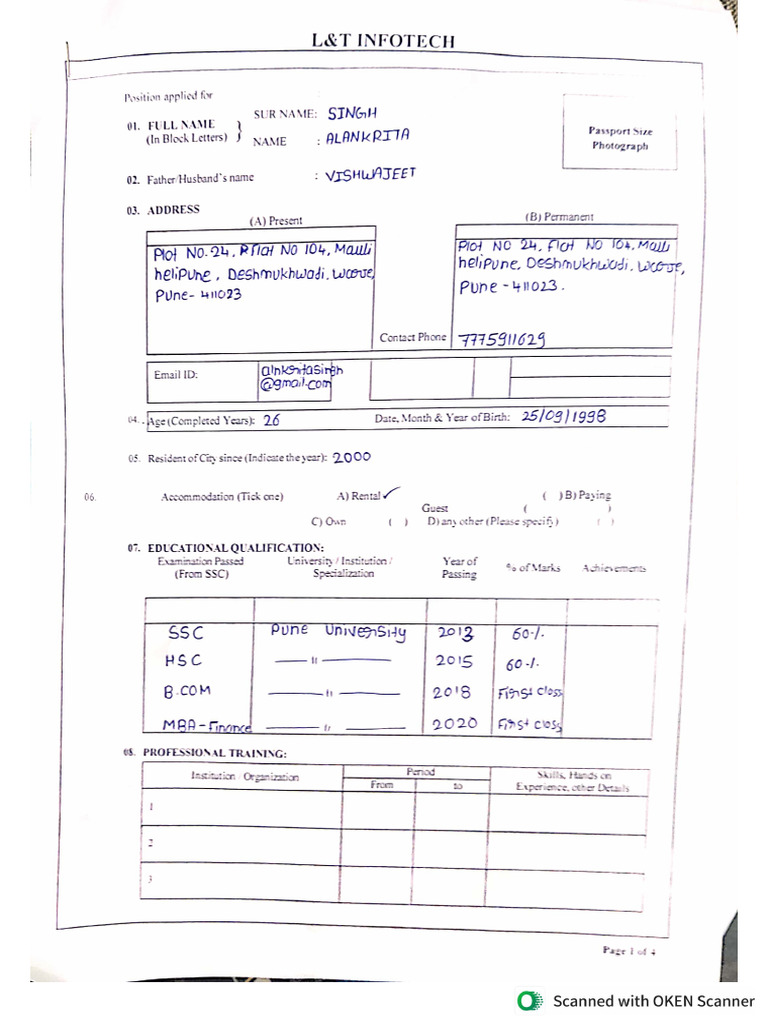 L&T INFOTECH
Position applied for
01. FULL NAME (In Block Letters) } SUR NAME: SINGH
NAME : ALANKRITA
Passport Size Photograph
02. Father/Husband's name : VISHWAJEET
03. ADDRESS
(A) Present
(B) Permanent
Plot NO. 24, Flat No 104, Mauli
heliPune, Deshmukhwadi,
Pune - 411023
Plot NO 24, Flat No 104, Mauli
heliPune, Deshmukhwadi,
Pune - 411023.
Contact Phone 7775911629
Email ID: alnkritasingh
@gmail.com
04. Age (Completed Years): 26 Date, Month & Year of Birth: 25/09/1998
05. Resident of City since (Indicate the year): 2000
06. Accommodation (Tick one) A) Rental ✓ ( ) B) Paying
Guest ( )
C) Own ( ) D) any other (Please specify) ( )
07. EDUCATIONAL QUALIFICATION:
Examination Passed University / Institution / Year of % of Marks Achievements
(From SSC) Specialization Passing
SSC Pune University 2013 60%
HSC —— 11 —— 2015 60%
B.COM —— 11 —— 2018 First class
MBA-Finance —— 11 —— 2020 First class
08. PROFESSIONAL TRAINING:
Institution / Organization Period Skills, Hands on
From to Experience, other Details
1
2
3
Page 1 of 4
Scanned with OKEN Scanner